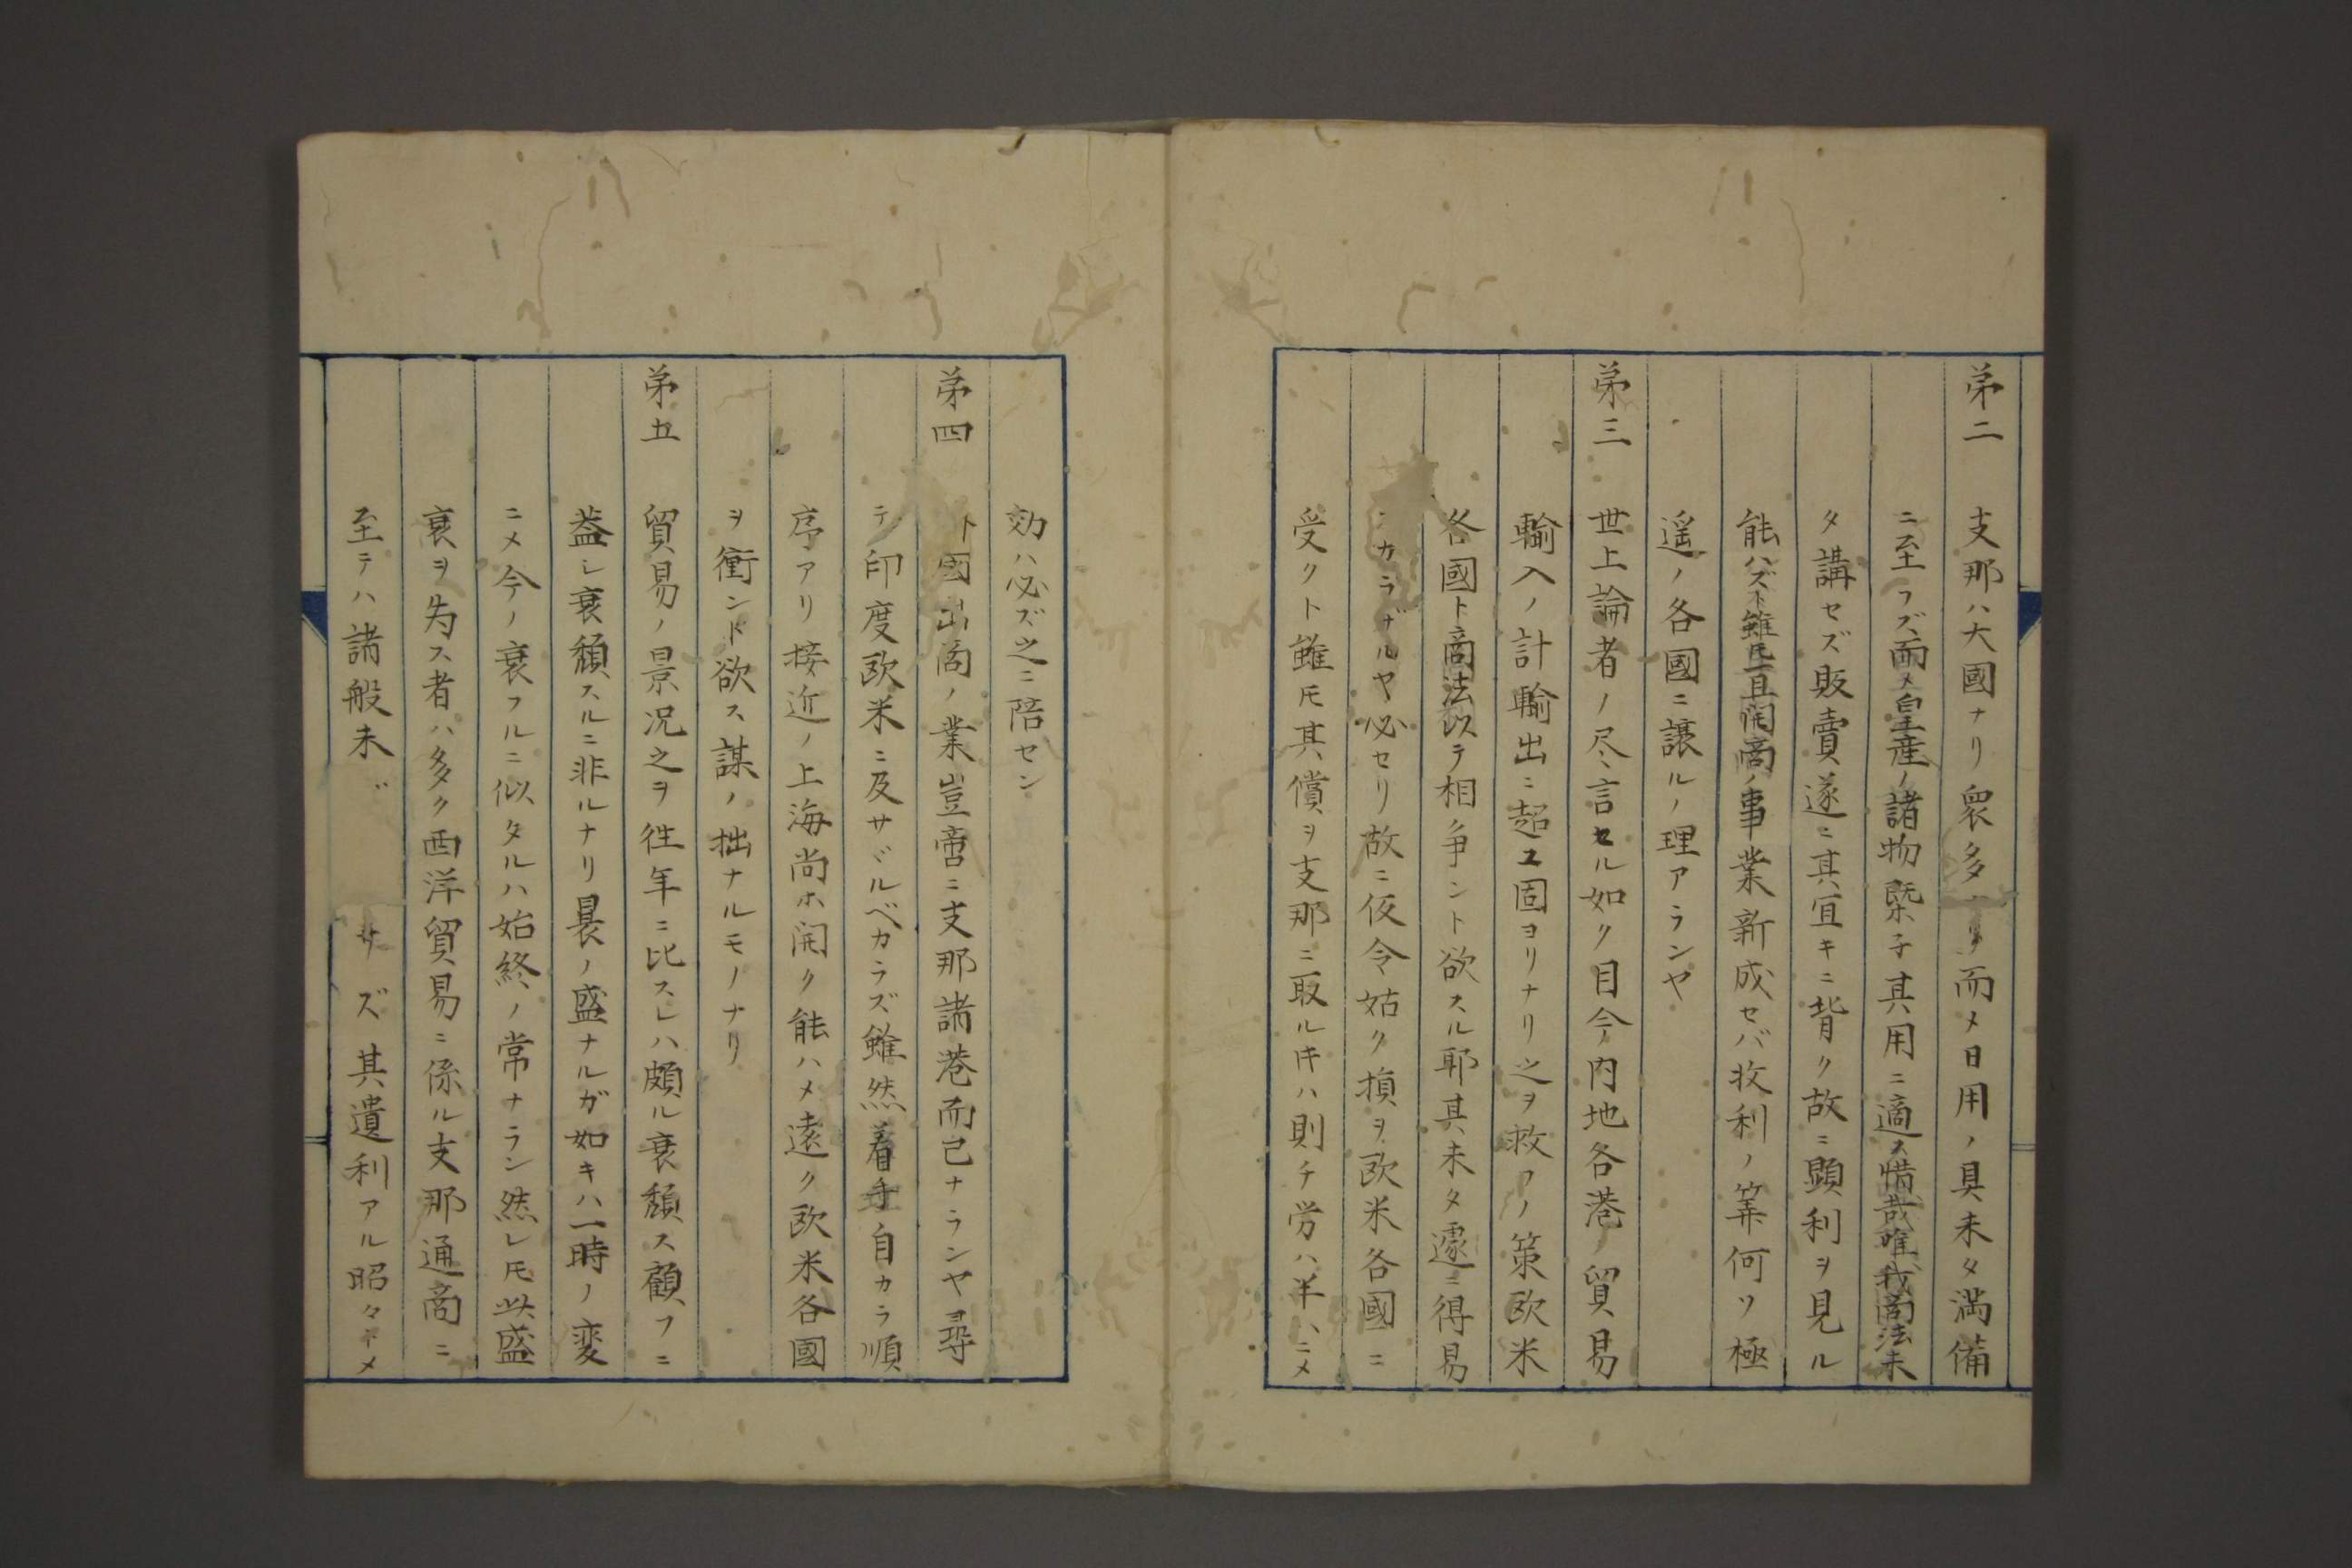 第二　支那ハ大國ナリ衆多ナリ而メ日用ノ具未タ満備
ニ至ラズ而メ皇産ノ諸物槩子其用ニ適ス惜哉唯我商法未
タ講セズ販賣遂ニ其宜キニ背ク故ニ顕利ヲ見ル
能ハズト雖𪜈一旦開商ノ事業新成セバ牧利ノ筭何ソ極
遥ノ各國ニ譲ルノ理アランヤ
第三　世上論者ノ尽ク言セル如ク目今内地各港ノ貿易
輸入ノ計輸出ニ超ユ固ヨリナリ之ヲ救フノ策欧米
各國ト商法以テ相争ント欲スル耶其未タ遽ニ得易
カラザルヤ必セリ故ニ仮令姑ク損ヲ欧米各國ニ
受クト雖𪜈其償ヲ支那ニ取ル𪜈ハ則チ労ハ半ニメ
効ハ必ズ之ニ陪セン
第四　國出商ノ業豈啻ニ支那諸港而已ナランヤ尋
テ印度欧米ニ及サヾルベカラズ雖然着手自カラ順
序アリ接近ノ上海尚ホ開ク能ハメ遠ク欧米各國
ヲ衝ント欲ス謀ノ拙ナルモノナリ
第五　貿易ノ景况之ヲ徃年ニ比スレハ頗ル衰頽ス顧フニ
葢シ衰頽スルニ非ルナリ曩ノ盛ナルガ如キハ一時ノ変
ニメ今ノ衰フルニ似タルハ始終ノ常ナラン然レ𪜈其盛
衰ヲ為ス者ハ多ク西洋貿易ニ係ル支那通商ニ
至テハ諸般未　サズ其遺利アル昭々トメ